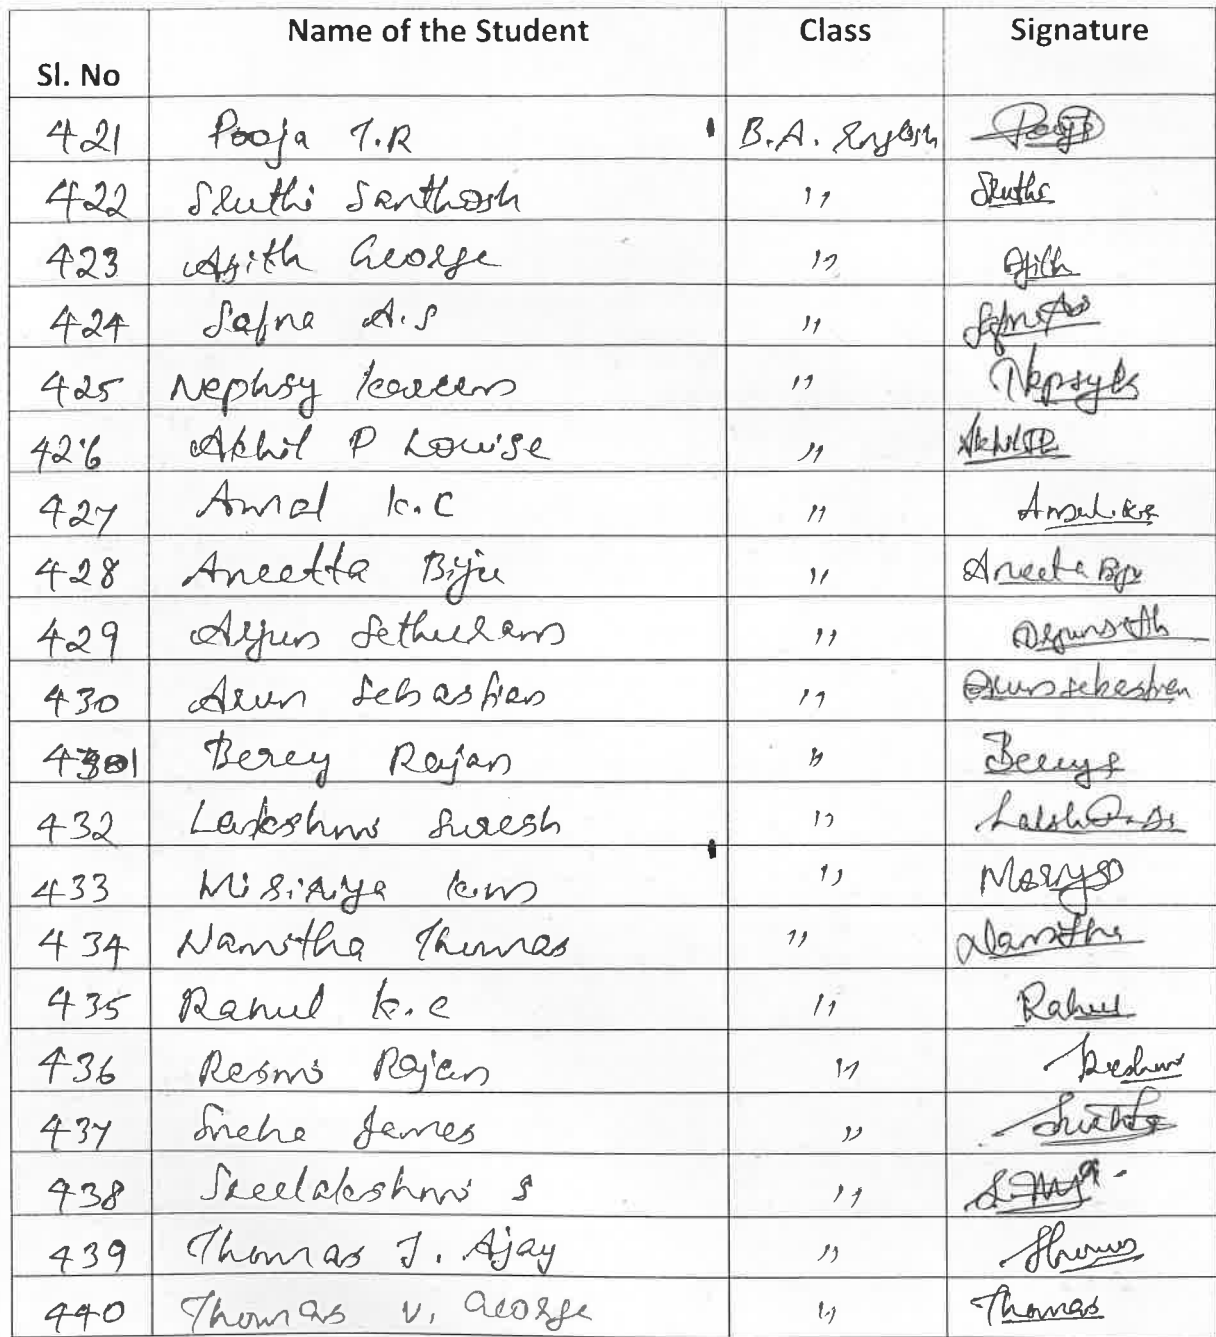 Sl. No Name of the Student Class Signature
421 Pooja T.R B.A. English Pooja
422 Sruthi Santhosh " Sruthi
423 Ajith George " Ajith
424 Safna A.S "
425 Nephsy Kareem " Nepsy
426 Akhil P Louise " Akhil
427 Amal K.C "
428 Aneetta Biju " Aneeta Biju
429 Arjun Sethuram "
430 Arun Sebastian " Arun sebastian
431 Bercy Rajan "
432 Lakshmi Suresh "
433 K.M "
434 Namitha Thomas " Namitha
435 Rahul K.C " Rahul
436 Resmi Rajan " Reshmi
437 Sneha James "
438 Sreelakshmi S "
439 Thomas J. Ajay " Thomas
440 Thomas V. George " Thomas